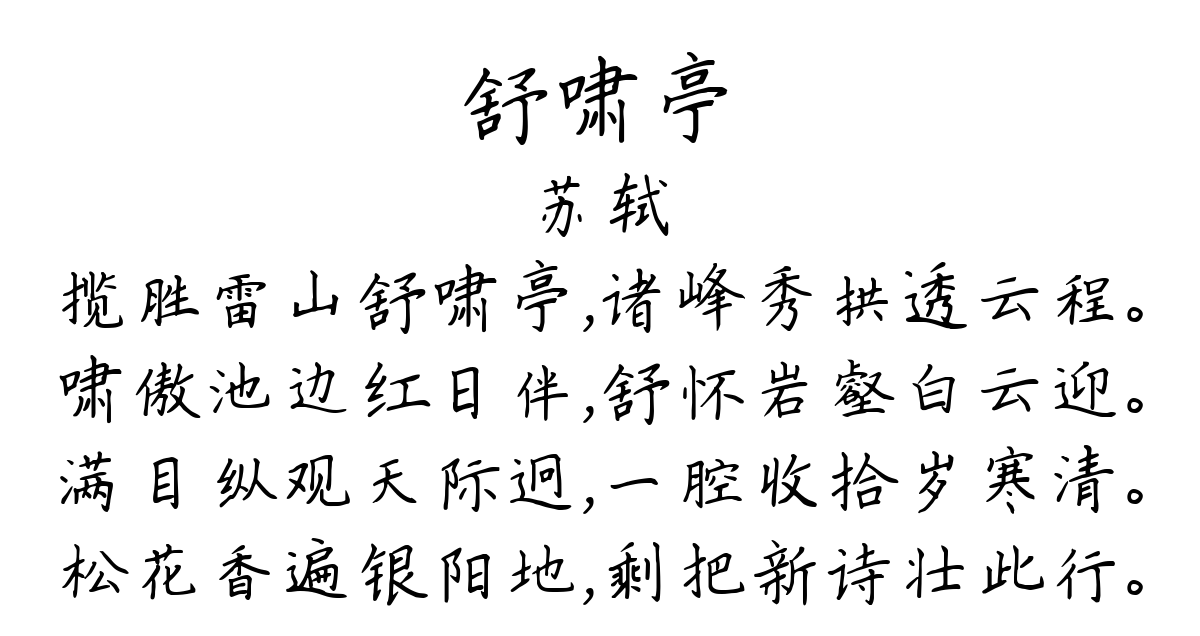 舒啸亭
苏轼
揽胜雷山舒啸亭,诸峰秀拱透云程。
啸傲池边红日伴,舒怀岩壑白云迎。
满目纵观天际迥,一腔收拾岁寒清。
松花香遍银阳地,剩把新诗壮此行。